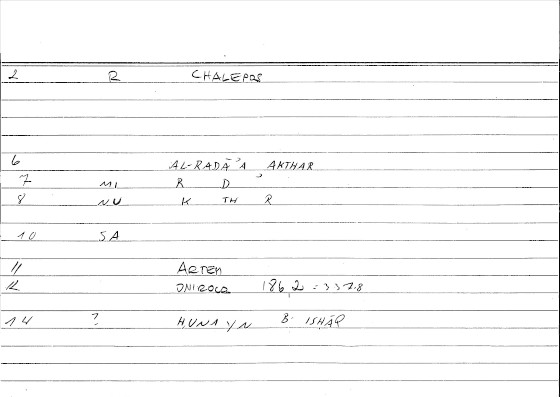 2 R CHALEPOS
6 AL-RADĀ'A, AKTHAR
7 MI R D
8 NU K TH R
10 SA
11 ARTEM
12 ONIROCR 186,2 = 337.8
14 ? ḤUNAYN B. ISHĀQ